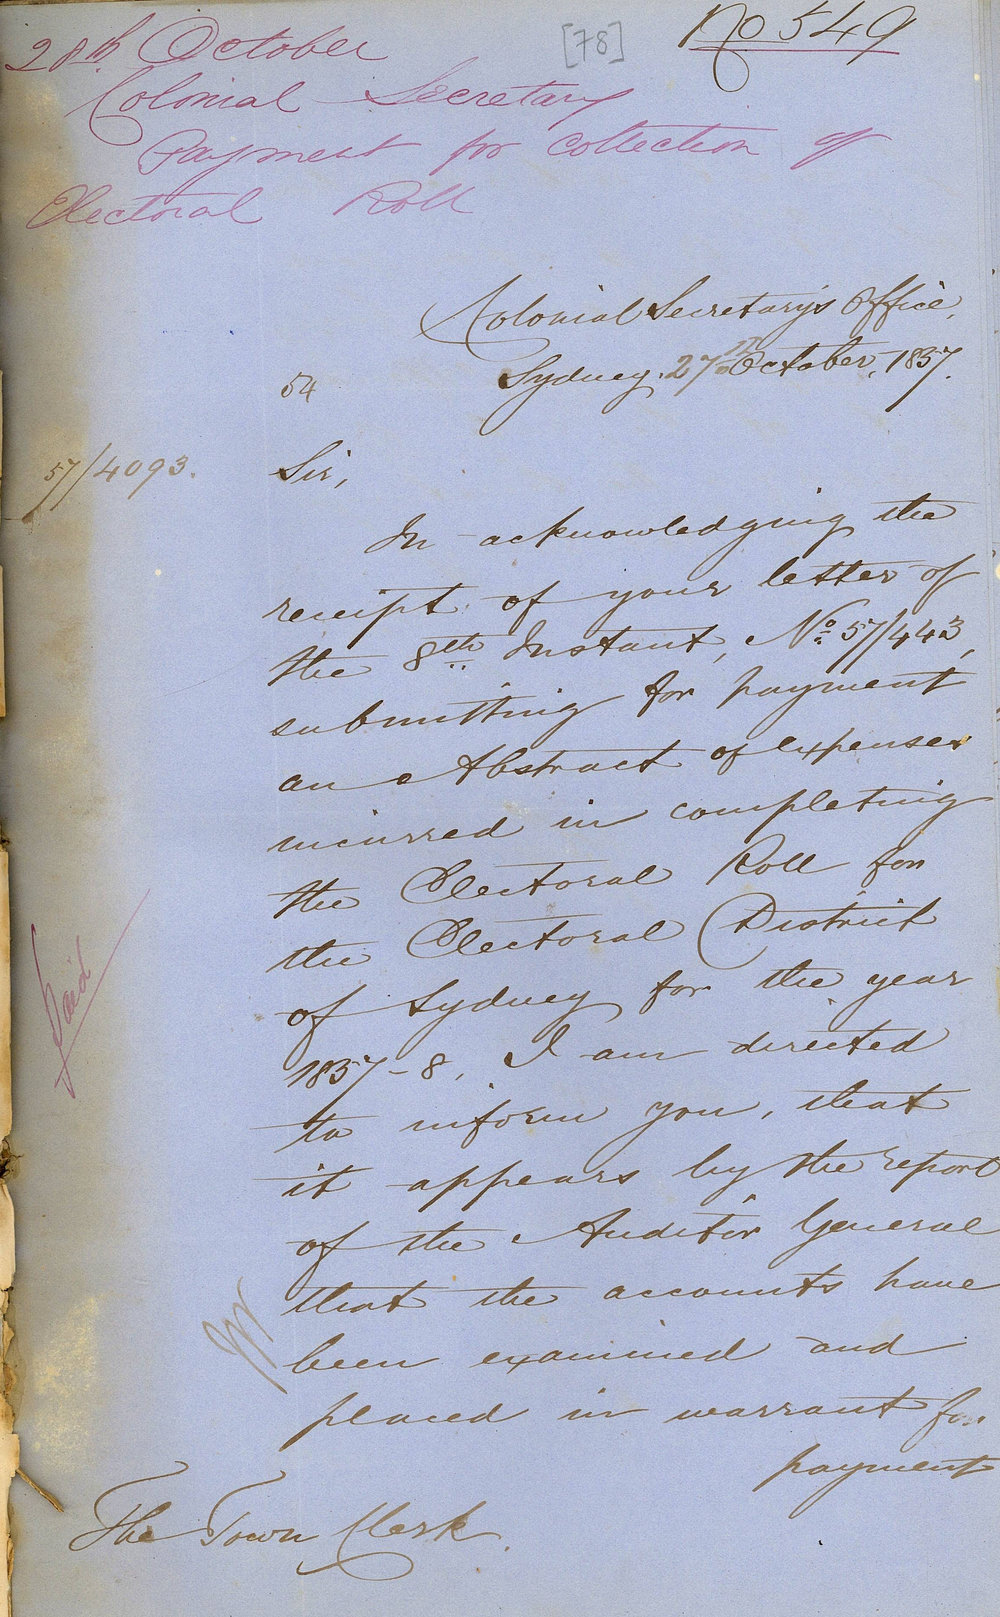 No 549
[78]
28th October
Colonial Secretary
Payment for collection of
Electoral Roll
Colonial Secretary's Office,
Sydney. 27th October, 1857.
54
57/4093.
Sir,
In acknowledging the
receipt of your letter of
the 8th Instant, No. 57/443,
submitting for payment
an Abstract of expenses
incurred in completing
the Electoral Roll for
the Electoral District
of Sydney for the year
1857-8, I am directed
to inform you, that
it appears by the report
of the Auditor General
that the accounts have
been examined and
placed in warrant for
payment
Paid
The Town Clerk.